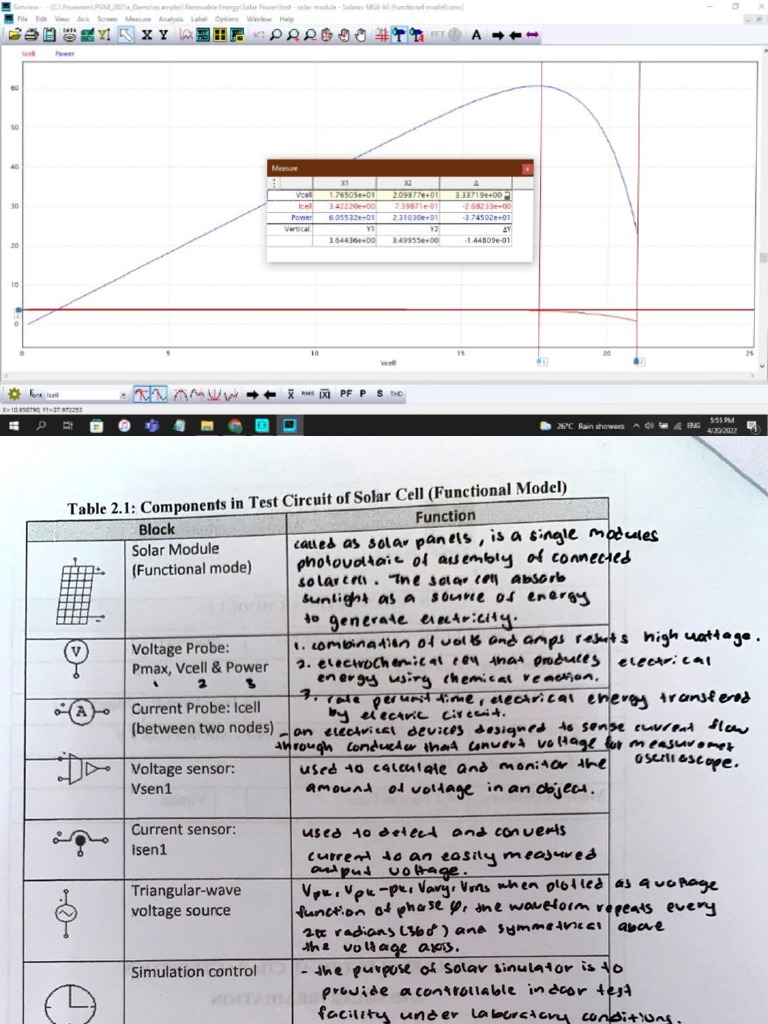 Simview - - [C:\Powersim\PSIM_2021a_Demo\examples\Renewable Energy\Solar Power\test - solar module - Solarex MSX-60 (functional model).smv]
File Edit View Axis Screen Measure Analysis Label Options Window Help
X Y FFT A
Icell Power
60
50
40
30
20
10
0
Measure
X1 X2 Δ
Vcell 1.76505e+01 2.09877e+01 3.33719e+00
Icell 3.42220e+00 7.39871e-01 -2.68233e+00
Power 6.05532e+01 2.31030e+01 -3.74502e+01
Vertical: Y1 Y2 ΔY
3.64436e+00 3.49955e+00 -1.44809e-01
0 5 10 15 20 25
Vcell
1 2
Icell
X RMS |X| PF P S THD
X=10.956790, Y1=27.972253
26°C Rain showers ENG 5:55 PM
4/20/2022
Table 2.1: Components in Test Circuit of Solar Cell (Functional Model)
Block Function
Solar Module
(Functional mode)
called as solar panels, is a single modules
photovoltaic of assembly of connected
solar cell. The solar cell absorb
sunlight as a source of energy
to generate electricity.
V
Voltage Probe:
Pmax, Vcell & Power
1 2 3
1. combination of volts and amps results high wattage.
2. electrochemical cell that produces electrical
energy using chemical reaction.
3. rate per unit time, electrical energy transfered
by electric circuit.
A
Current Probe: Icell
(between two nodes)
- an electrical devices designed to sense current flow
through conductor that convert voltage for measuremet
oscilloscope.
Voltage sensor:
Vsen1
used to calculate and monitor the
amount of voltage in an object.
Current sensor:
Isen1
used to detect and converts
current to an easily measured
output voltage.
Triangular-wave
voltage source
Vpk, Vpk-pk, Vavg, Vrms when plotled as a voltage
function of phase φ, the waveform repeats every
2π radians (360°) and symmetrical above
the voltage axis.
Simulation control
- the purpose of solar sinulator is to
provide a controllable indoor test
facility under laboratory conditions.